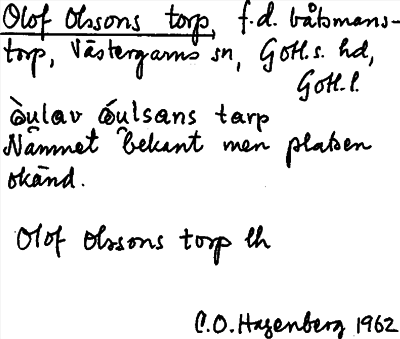 Olof Olssons torp, f.d. båtsmans-
torp, Västergarns sn, Gotl.s. hd,
Gotl. l.
òu̯lav óu̯lsans tarp
Namnet bekant men platsen
okänd.
Olof Olssons torp lh
C.O. Hagenberg 1962